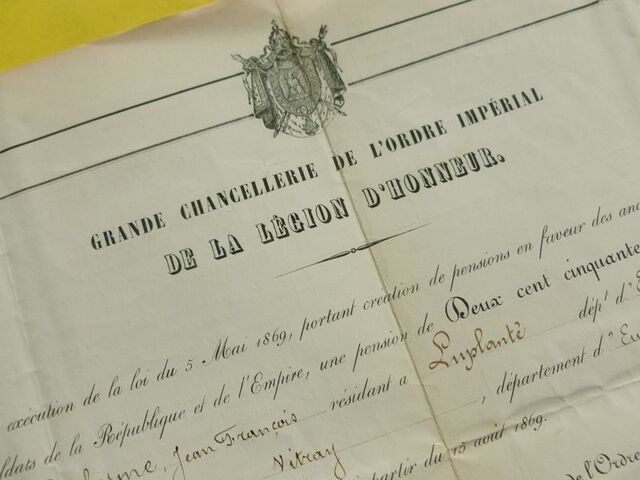 GRANDE CHANCELLERIE DE L'ORDRE IMPÉRIAL
DE LA LÉGION D'HONNEUR.
exécution de la loi du 5 Mai 1869, portant création de pensions en faveur des
de la République et de l'Empire, une pension de Deux cent cinquante
Jean François résidant a Luplanté dépt d'
Vitray, département d'
partir du 15 août 1869.
de l'Ordre